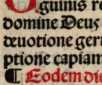 guinis re
domine Deus
deuotione ger
ptione capiam
¶ Eodem di